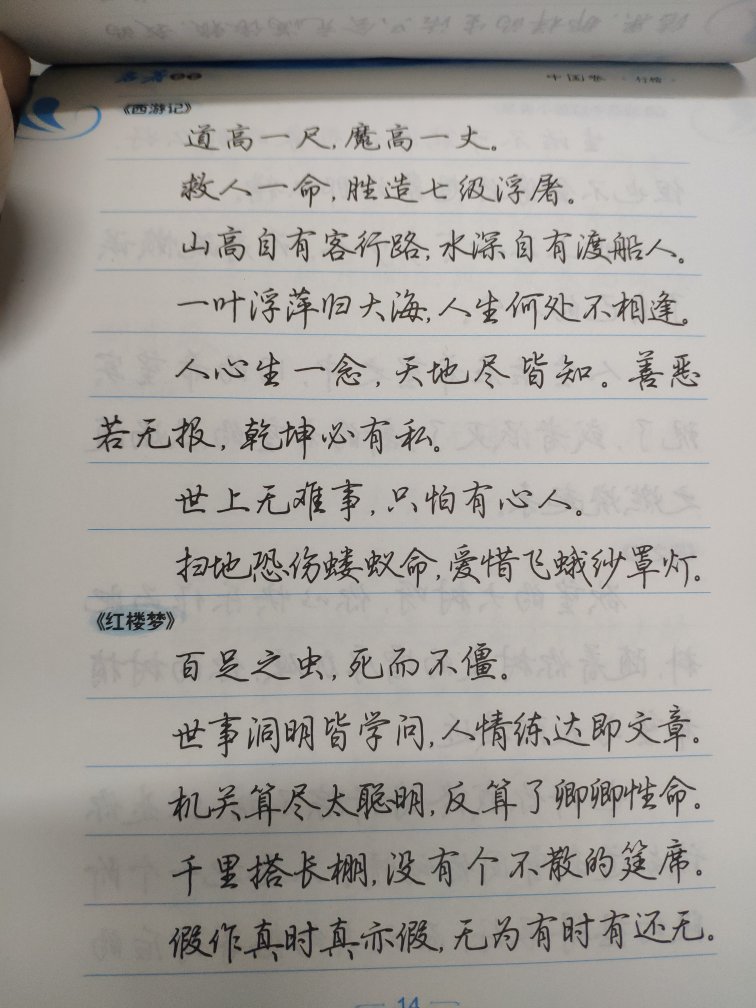 中国卷·行楷
《西游记》
道高一尺，魔高一丈。
救人一命，胜造七级浮屠。
山高自有客行路，水深自有渡船人。
一叶浮萍归大海，人生何处不相逢。
人心生一念，天地尽皆知。善恶
若无报，乾坤必有私。
世上无难事，只怕有心人。
扫地恐伤蝼蚁命，爱惜飞蛾纱罩灯。
《红楼梦》
百足之虫，死而不僵。
世事洞明皆学问，人情练达即文章。
机关算尽太聪明，反算了卿卿性命。
千里搭长棚，没有个不散的筵席。
假作真时真亦假，无为有时有还无。
14